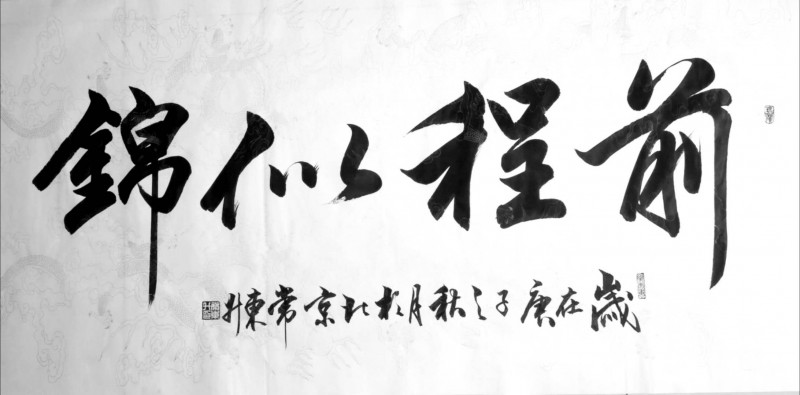 前程似錦
歲在庚子之秋月於北京常東升